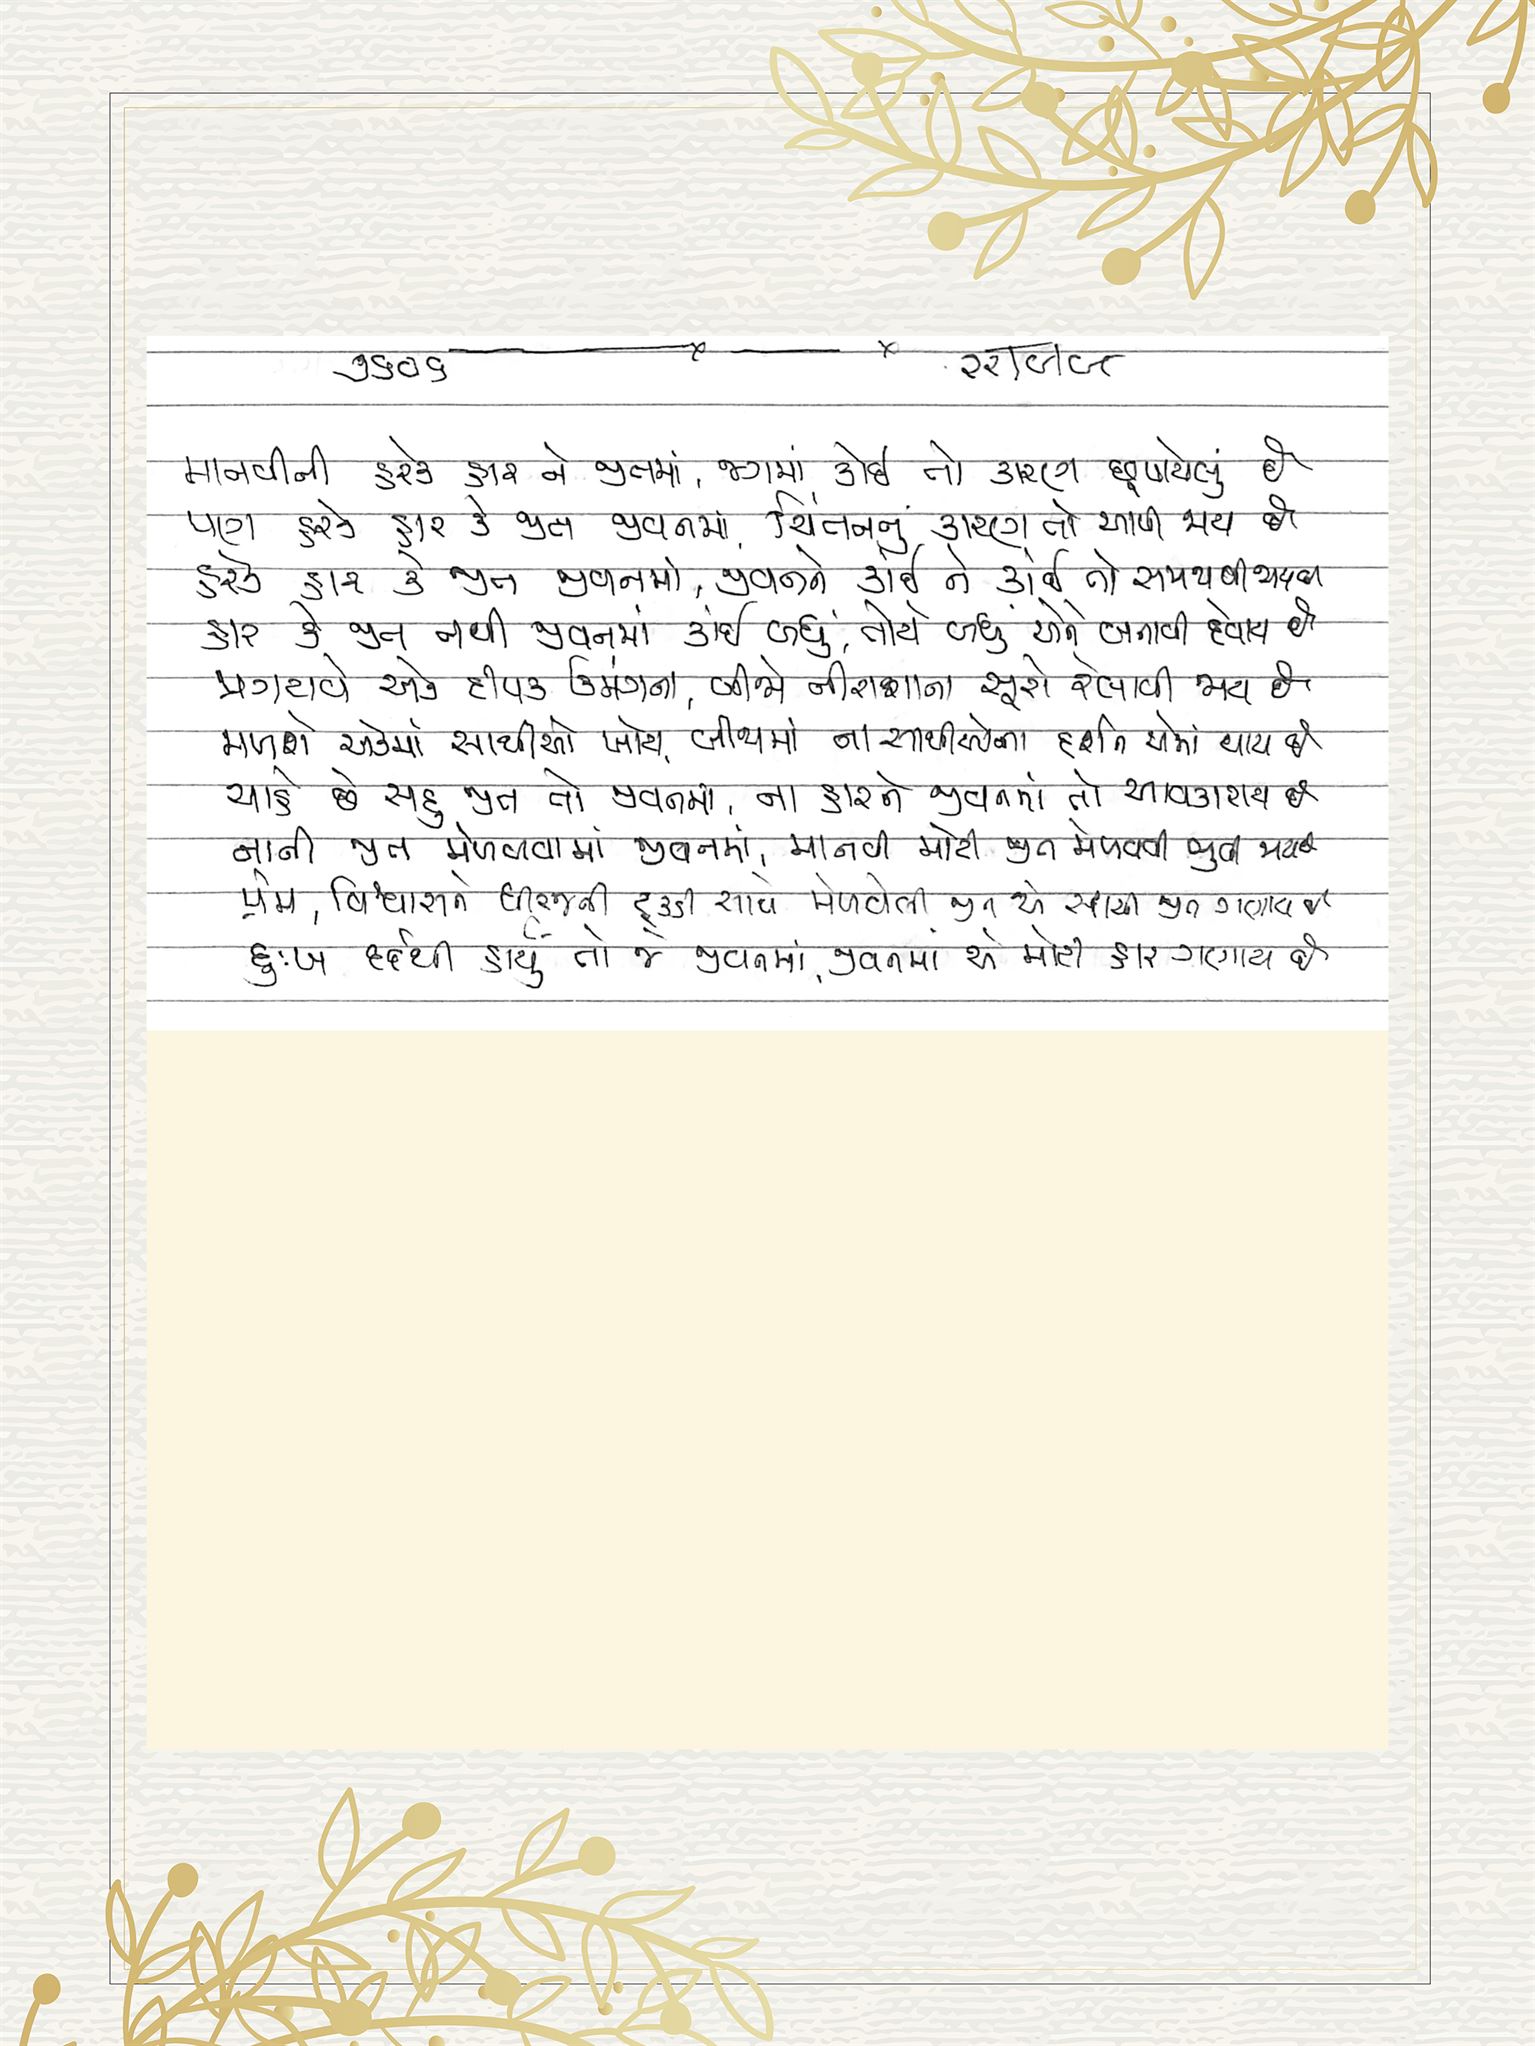 ૭૬૦૬ ૨૨/૧/૯૮
માનવીની હરેક હાર ને જીતમાં, જગમાં કોઈ તો કારણ છૂપાયેલું છે
પણ હરેક હાર કે જીત જીવનમાં, ચિંતનનું કારણ તો આપી જાય છે
હરેક હાર કે જીત જીવનમાં, જીવનને કાંઈ ને કાંઈ તો સમજાવી જાય છે
હાર કે જીત નથી જીવનમાં કાંઈ બધું, તોયે બધું એને બનાવી દેવાય છે
પ્રગટાવે એક દીપક ઉમંગના, બીજો નીરાશાના સૂરો રેલાવી જાય છે
મળશે એકમાં સાથીઓ જોય, બીજામાં ના સાથીઓના દર્શન એમાં થાય છે
ચાહે છે સહુ જીત તો જીવનમાં, ના હારને જીવનમાં તો આવકારાય છે
નાની જીત મેળવવામાં જીવનમાં, માનવી મોટી જીત મેળવવી ભુલી જાય છે
પ્રેમ, વિશ્વાસને ધીરજની ટૂકડી સાથે મેળવેલી જીત એ સાચી જીત ગણાય છે
દુઃખ દર્દથી હાર્યું તો જે જીવનમાં, જીવનમાં એ મોટી હાર ગણાય છે